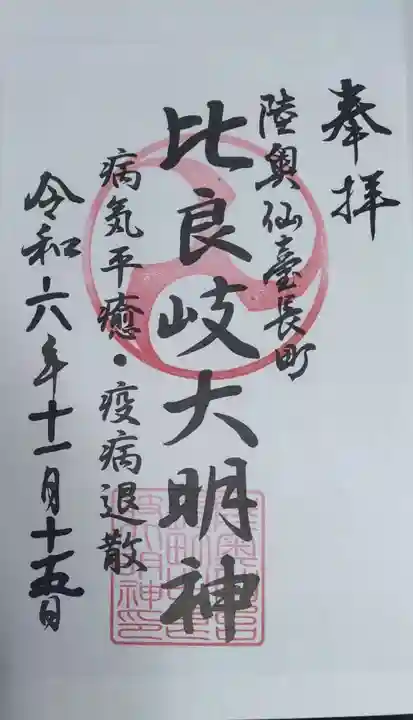 奉拝
陸奥仙臺長町
比良岐大明神
病気平癒・疫病退散
令和六年十一月十五日